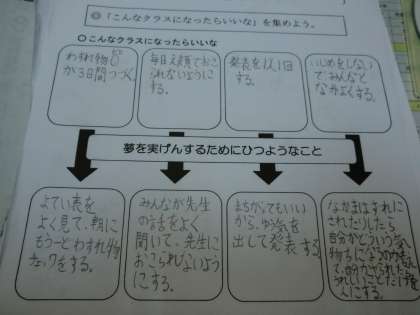 ◎「こんなクラスになったらいいな」を集めよう。
○こんなクラスになったらいいな
わすれ物ゼロ
が3日間つづく
毎日え顔でおこ
られないように
する。
発表を1人1回
する。
いじめをしない
で、みんなと
なかよくする。
夢を実げんするためにひつようなこと
よてい表を
よく見て、朝に
もう一とわすれ物
チェックをする。
みんなが先生
の話をよく
聞いて、先生に
おこられないよう
にする。
まちがってもいい
から、ゆう気を
出して発表する
なかまはずれに
されたりしたら
自分がどういう気
持ちに